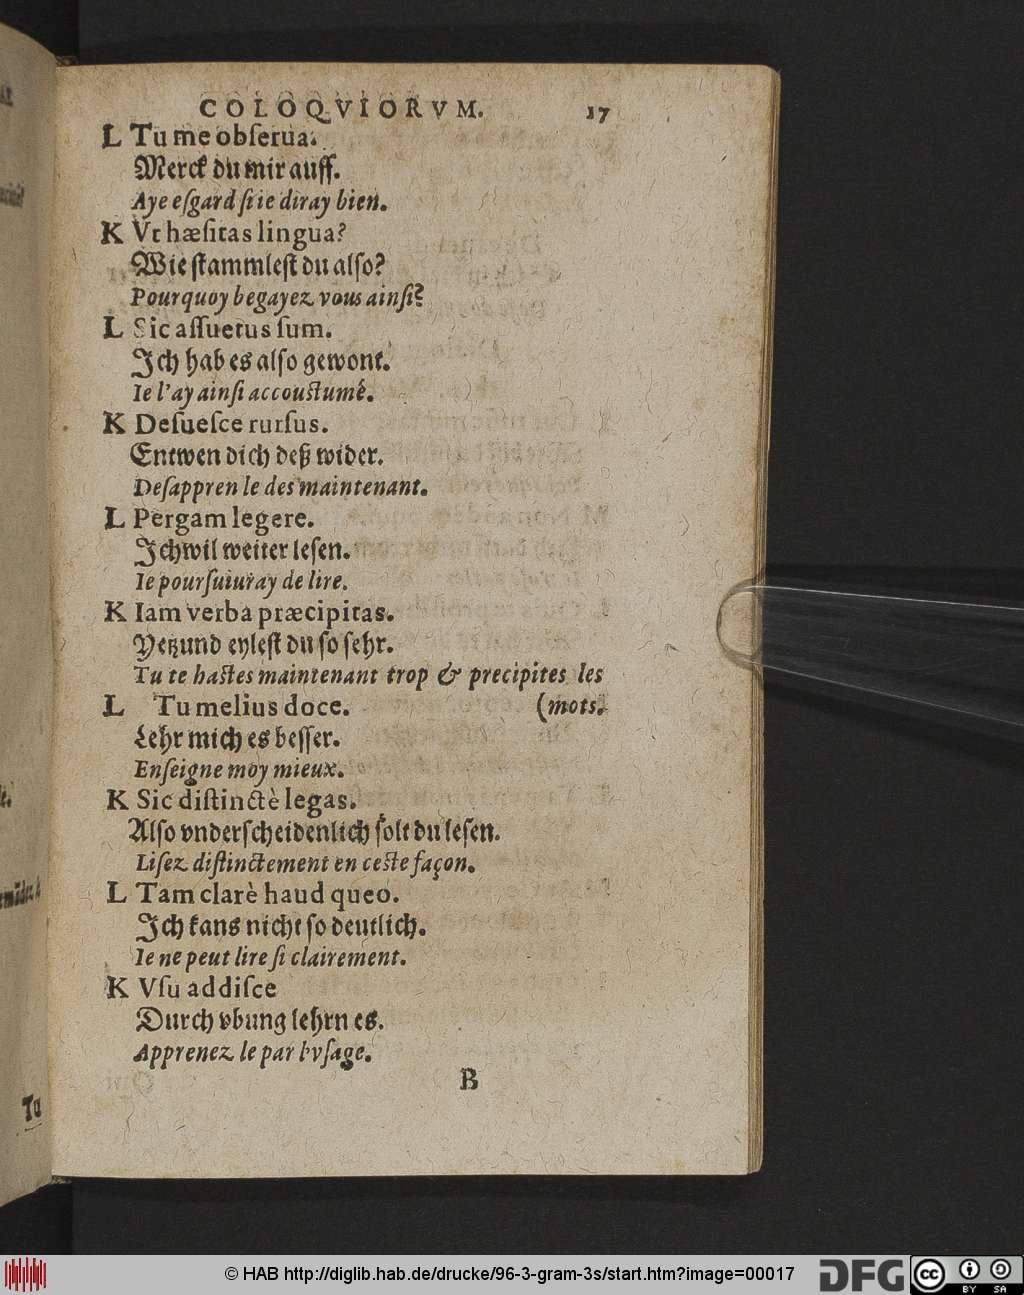 COLOQVIORVM. 17
L Tu me obſerua.
Merck du mir auff.
Aye eſgard ſi ie diray bien.
K Vt hæſitas lingua?
Wie ſtammleſt du alſo?
Pourquoy begayez vous ainſi?
L Sic aſſuetus ſum.
Ich hab es alſo gewont.
Ie l'ay ainſi accouſtumé.
K Deſueſce rurſus.
Entwen dich deß wider.
Deſappren le des maintenant.
L Pergam legere.
Ich wil weiter leſen.
Ie pourſuiuray de lire.
K Iam verba præcipitas.
Yetzund eyleſt du ſo ſehr.
Tu te haſtes maintenant trop & precipites les
L Tu melius doce. (mots.
Lehr mich es beſſer.
Enſeigne moy mieux.
K Sic diſtinctè legas.
Alſo vnderſcheidenlich ſolt du leſen.
Liſez diſtinctement en ceſte façon.
L Tam clarè haud queo.
Ich kans nicht ſo deutlich.
Ie ne peut lire ſi clairement.
K Vſu addiſce
Durch vbung lehrn es.
Apprenez le par lvſage.
B
Tu
© HAB http://diglib.hab.de/drucke/96-3-gram-3s/start.htm?image=00017
DFG
cc BY SA